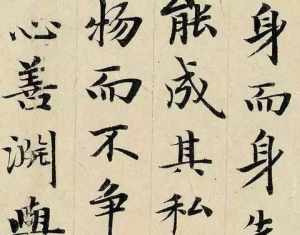 身而身先
能成其私
物而不争
心善渊與